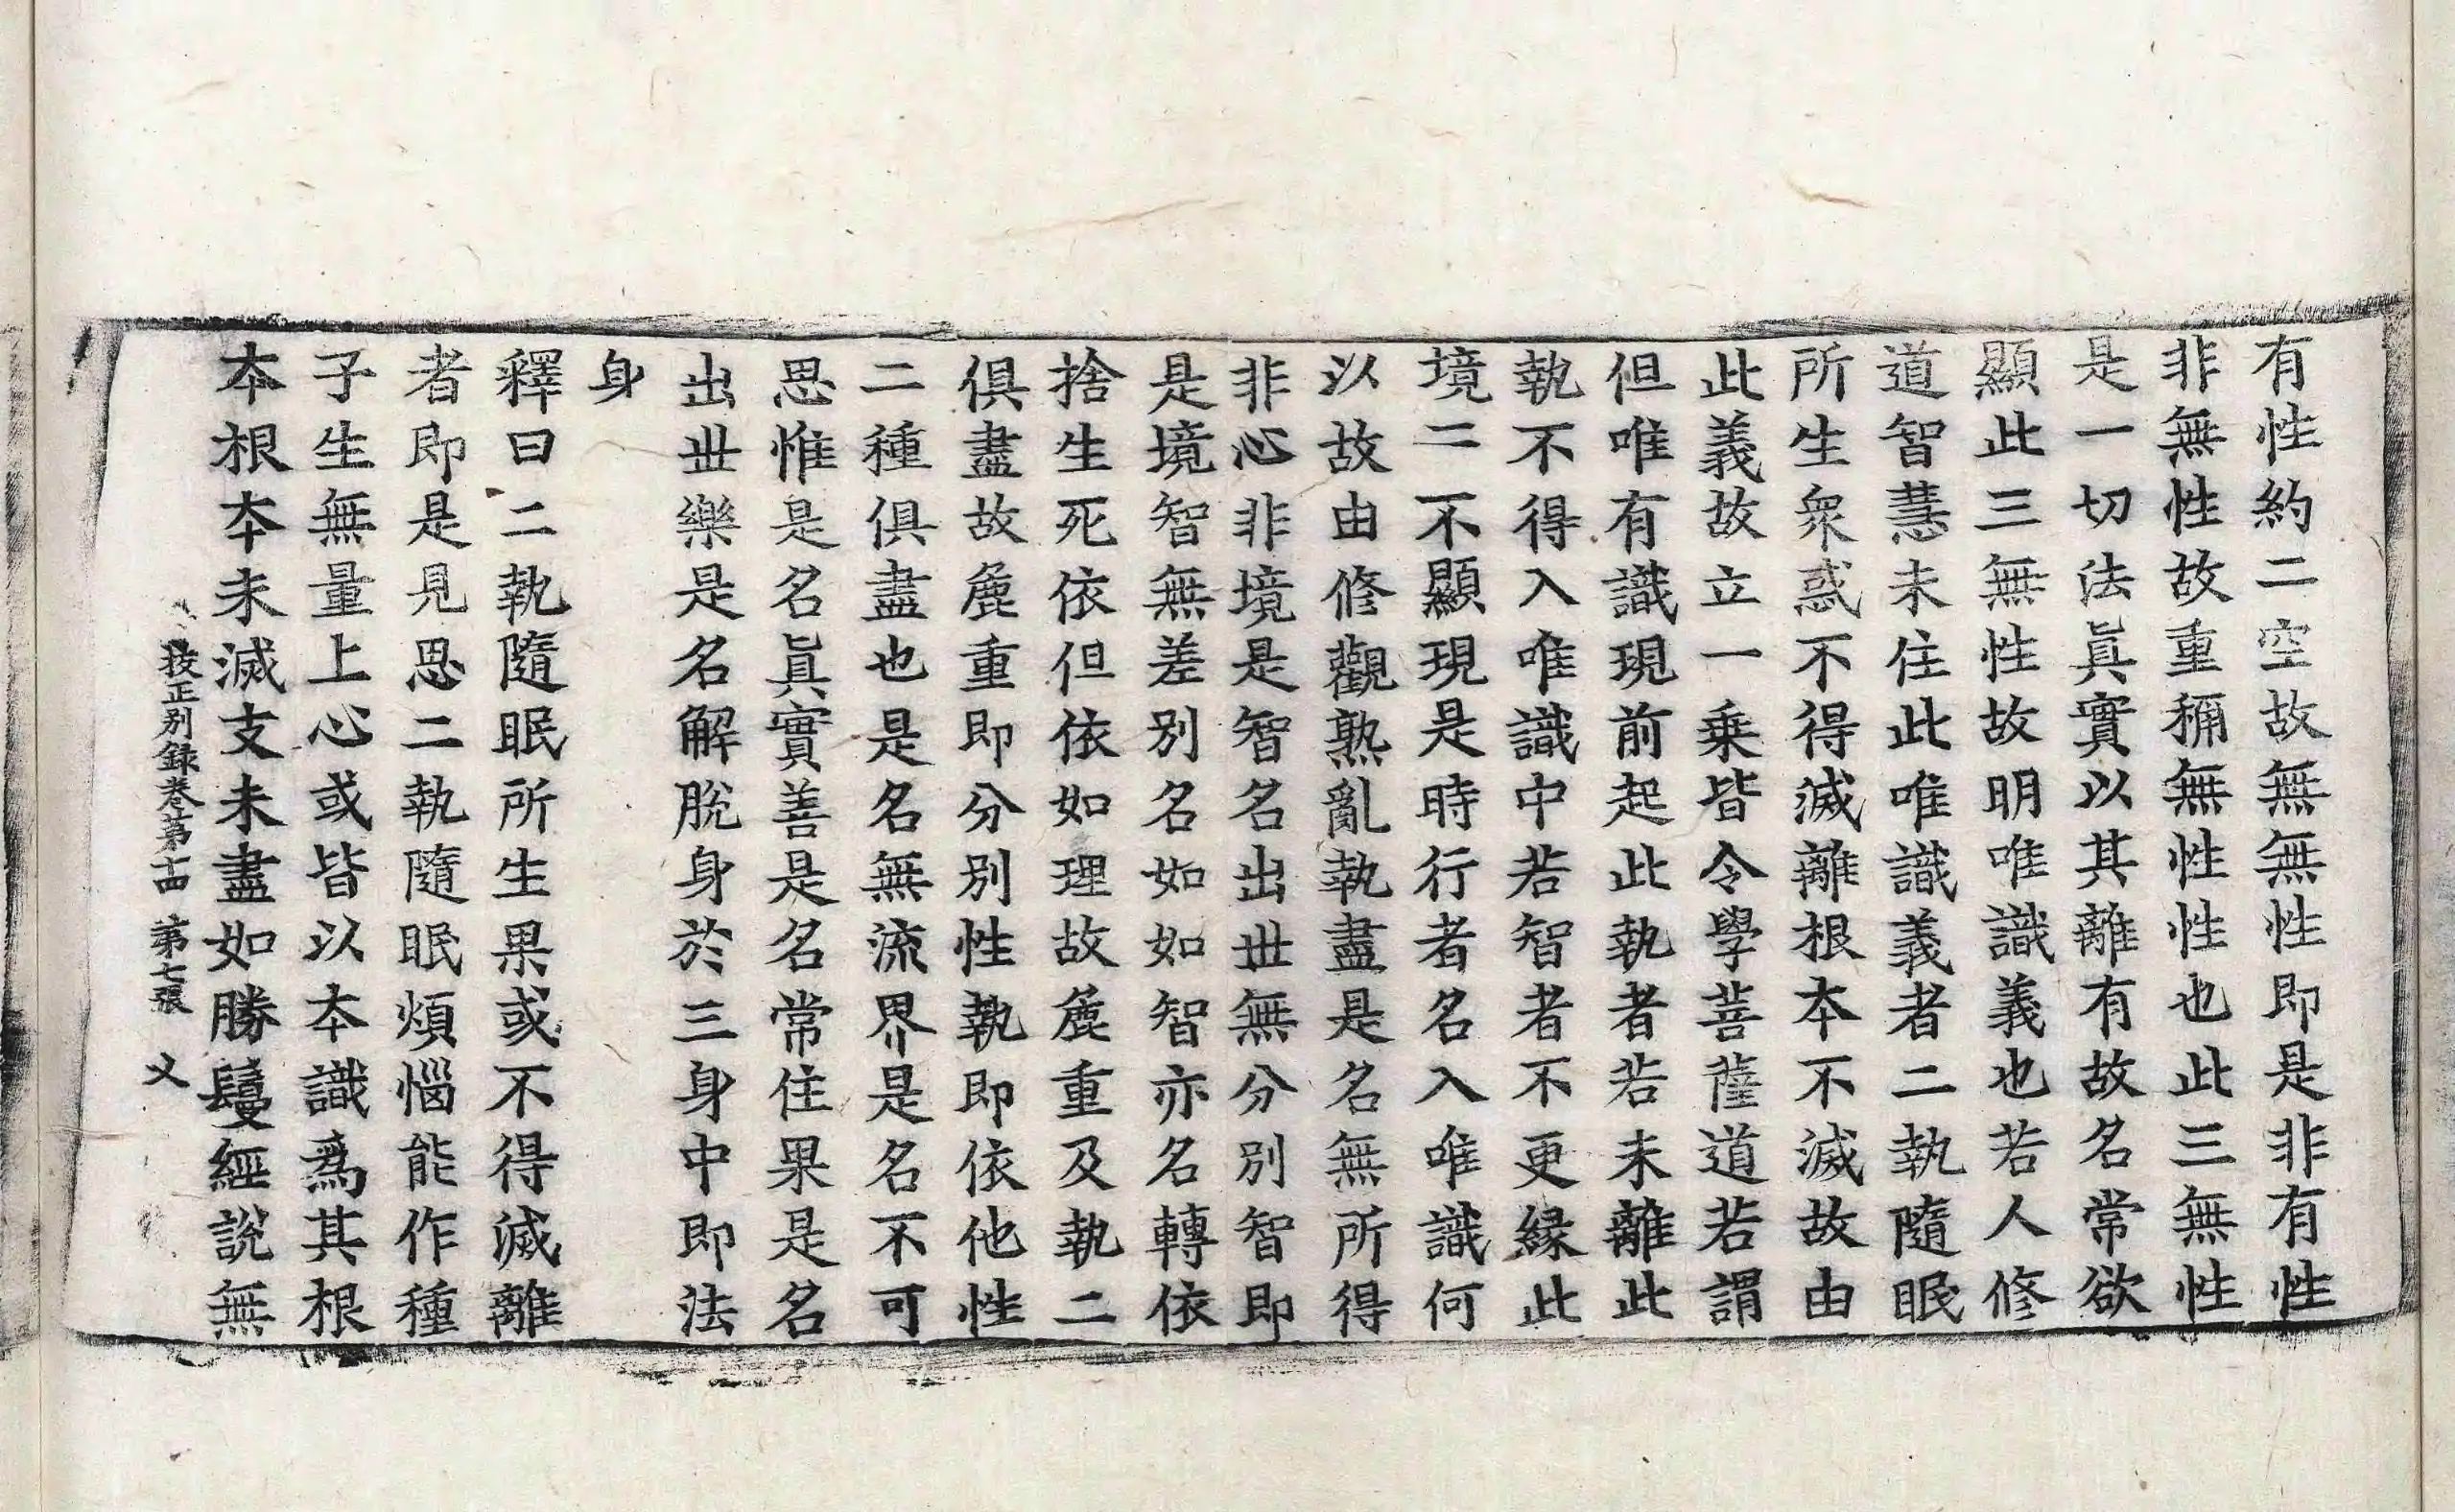 有性約二空故無無性即是非有性
非無性故重稱無性性也此三無性
是一切法眞實以其離有故名常欲
顯此三無性故明唯識義也若人修
道智慧未住此唯識義者二執隨眠
所生衆惑不得滅離根本不滅故由
此義故立一乗皆令學菩薩道若謂
但唯有識現前起此執者若未離此
執不得入唯識中若智者不更緣此
境二不顯現是時行者名入唯識何
以故由修觀熟亂執盡是名無所得
非心非境是智名出世無分別智即
是境智無差別名如如智亦名轉依
捨生死依但依如理故麁重及執二
俱盡故麁重即分別性執即依他性
二種俱盡也是名無流界是名不可
思惟是名眞實善是名常住果是名
出世樂是名解脫身於三身中即法
身
釋曰二執隨眠所生果或不得滅離
者即是見思二執隨眠煩惱能作種
子生無量上心或皆以本識爲其根
本根本未滅支未盡如勝鬘經說無
挍正別録卷第十四 第七張 义